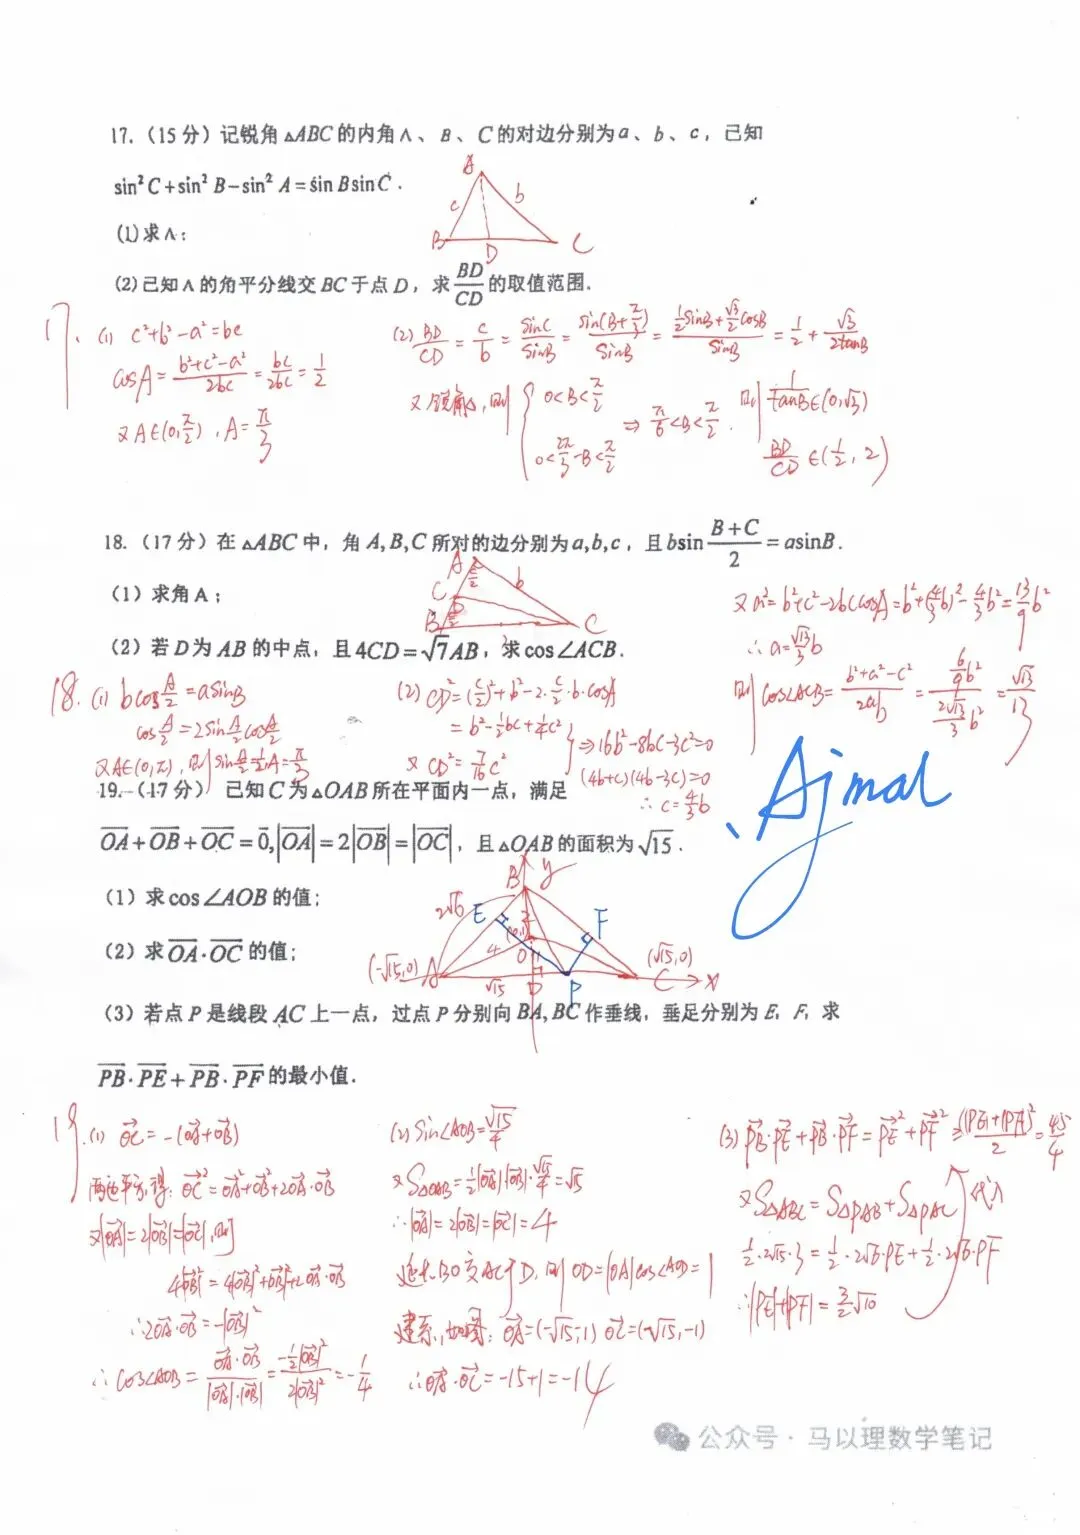 17. (15分) 记锐角△ABC的内角A、B、C的对边分别为a、b、c，已知
sin²C+sin²B−sin²A=sinBsinC.
(1)求A;
(2)已知A的角平分线交BC于点D，求BD/CD的取值范围.
A
c b
B D C
17. (1) c²+b²−a²=bc
cosA=(b²+c²−a²)/2bc=bc/2bc=1/2
又A∈(0,π/2), A=π/3
(2) BD/CD=c/b=sinC/sinB=sin(B+π/3)/sinB=(1/2sinB+√3/2cosB)/sinB=1/2+√3/2tanB
又锐角△,则{0<B<π/2
0<2π/3−B<π/2 ⇒π/6<B<π/2. 则1/tanB∈(0,√3)
BD/CD∈(1/2,2)
18. (17分) 在△ABC中，角A,B,C所对的边分别为a,b,c，且bsin(B+C)/2=asinB.
(1) 求角A;
(2) 若D为AB的中点，且4CD=√7AB，求cos∠ACB.
A
c/2 b
C D
c/2
B C
18. (1) bcosA/2=asinB
cosA/2=2sinA/2cosA/2
又A∈(0,π),则sinA/2=1/2,A=π/3
(2) CD²=(c/2)²+b²−2·c/2·b·cosA
=b²−1/2bc+1/4c²
又CD²=7/16c²
⇒16b²−8bc−3c²=0
(4b+c)(4b−3c)=0
∴c=4/3b
又a²=b²+c²−2bccosA=b²+(4/3b)²−4/3b²=13/9b²
∴a=√13/3b
则cos∠ACB=(b²+a²−c²)/2ab=(6/9b²)/(2√13/3b²)=√13/13
Ajmal
19. (17分) 已知C为△OAB所在平面内一点，满足
OA+OB+OC=0,|OA|=2|OB|=|OC|，且△OAB的面积为√15.
(1) 求cos∠AOB的值;
(2) 求OA·OC的值;
(3) 若点P是线段AC上一点，过点P分别向BA,BC作垂线，垂足分别为E, F, 求
PB·PE+PB·PF的最小值.
B y
2√6 E F
2
4 O
(−√15,0) A √15 D P C (√15,0) x
19. (1) OC=−(OA+OB)
两边平方,得: OC²=OA²+OB²+2OA·OB
又|OA|=2|OB|=|OC|,则
4|OB|²=4|OB|²+|OB|²+2OA·OB
∴2OA·OB=−|OB|²
∴cos∠AOB=OA·OB/|OA|·|OB|=−1/2|OB|²/2|OB|²=−1/4
(2) sin∠AOB=√15/4
又S△OAB=1/2|OA||OB|·√15/4=√15
∴|OA|=2|OB|=|OC|=4
延长BO交AC于D,则OD=|OA|cos∠AOD=1
建系,如图: OA=(−√15,−1) OC=(√15,−1)
∴OA·OC=−15+1=−14
(3) PB·PE+PB·PF=PE²+PF²≥(|PE|+|PF|)²/2=45/4
又S△ABC=S△PAB+S△PAC 代入
1/2·2√15·3=1/2·2√6·PE+1/2·2√6·PF
∴|PE|+|PF|=3/2√10
公众号 · 马以理数学笔记